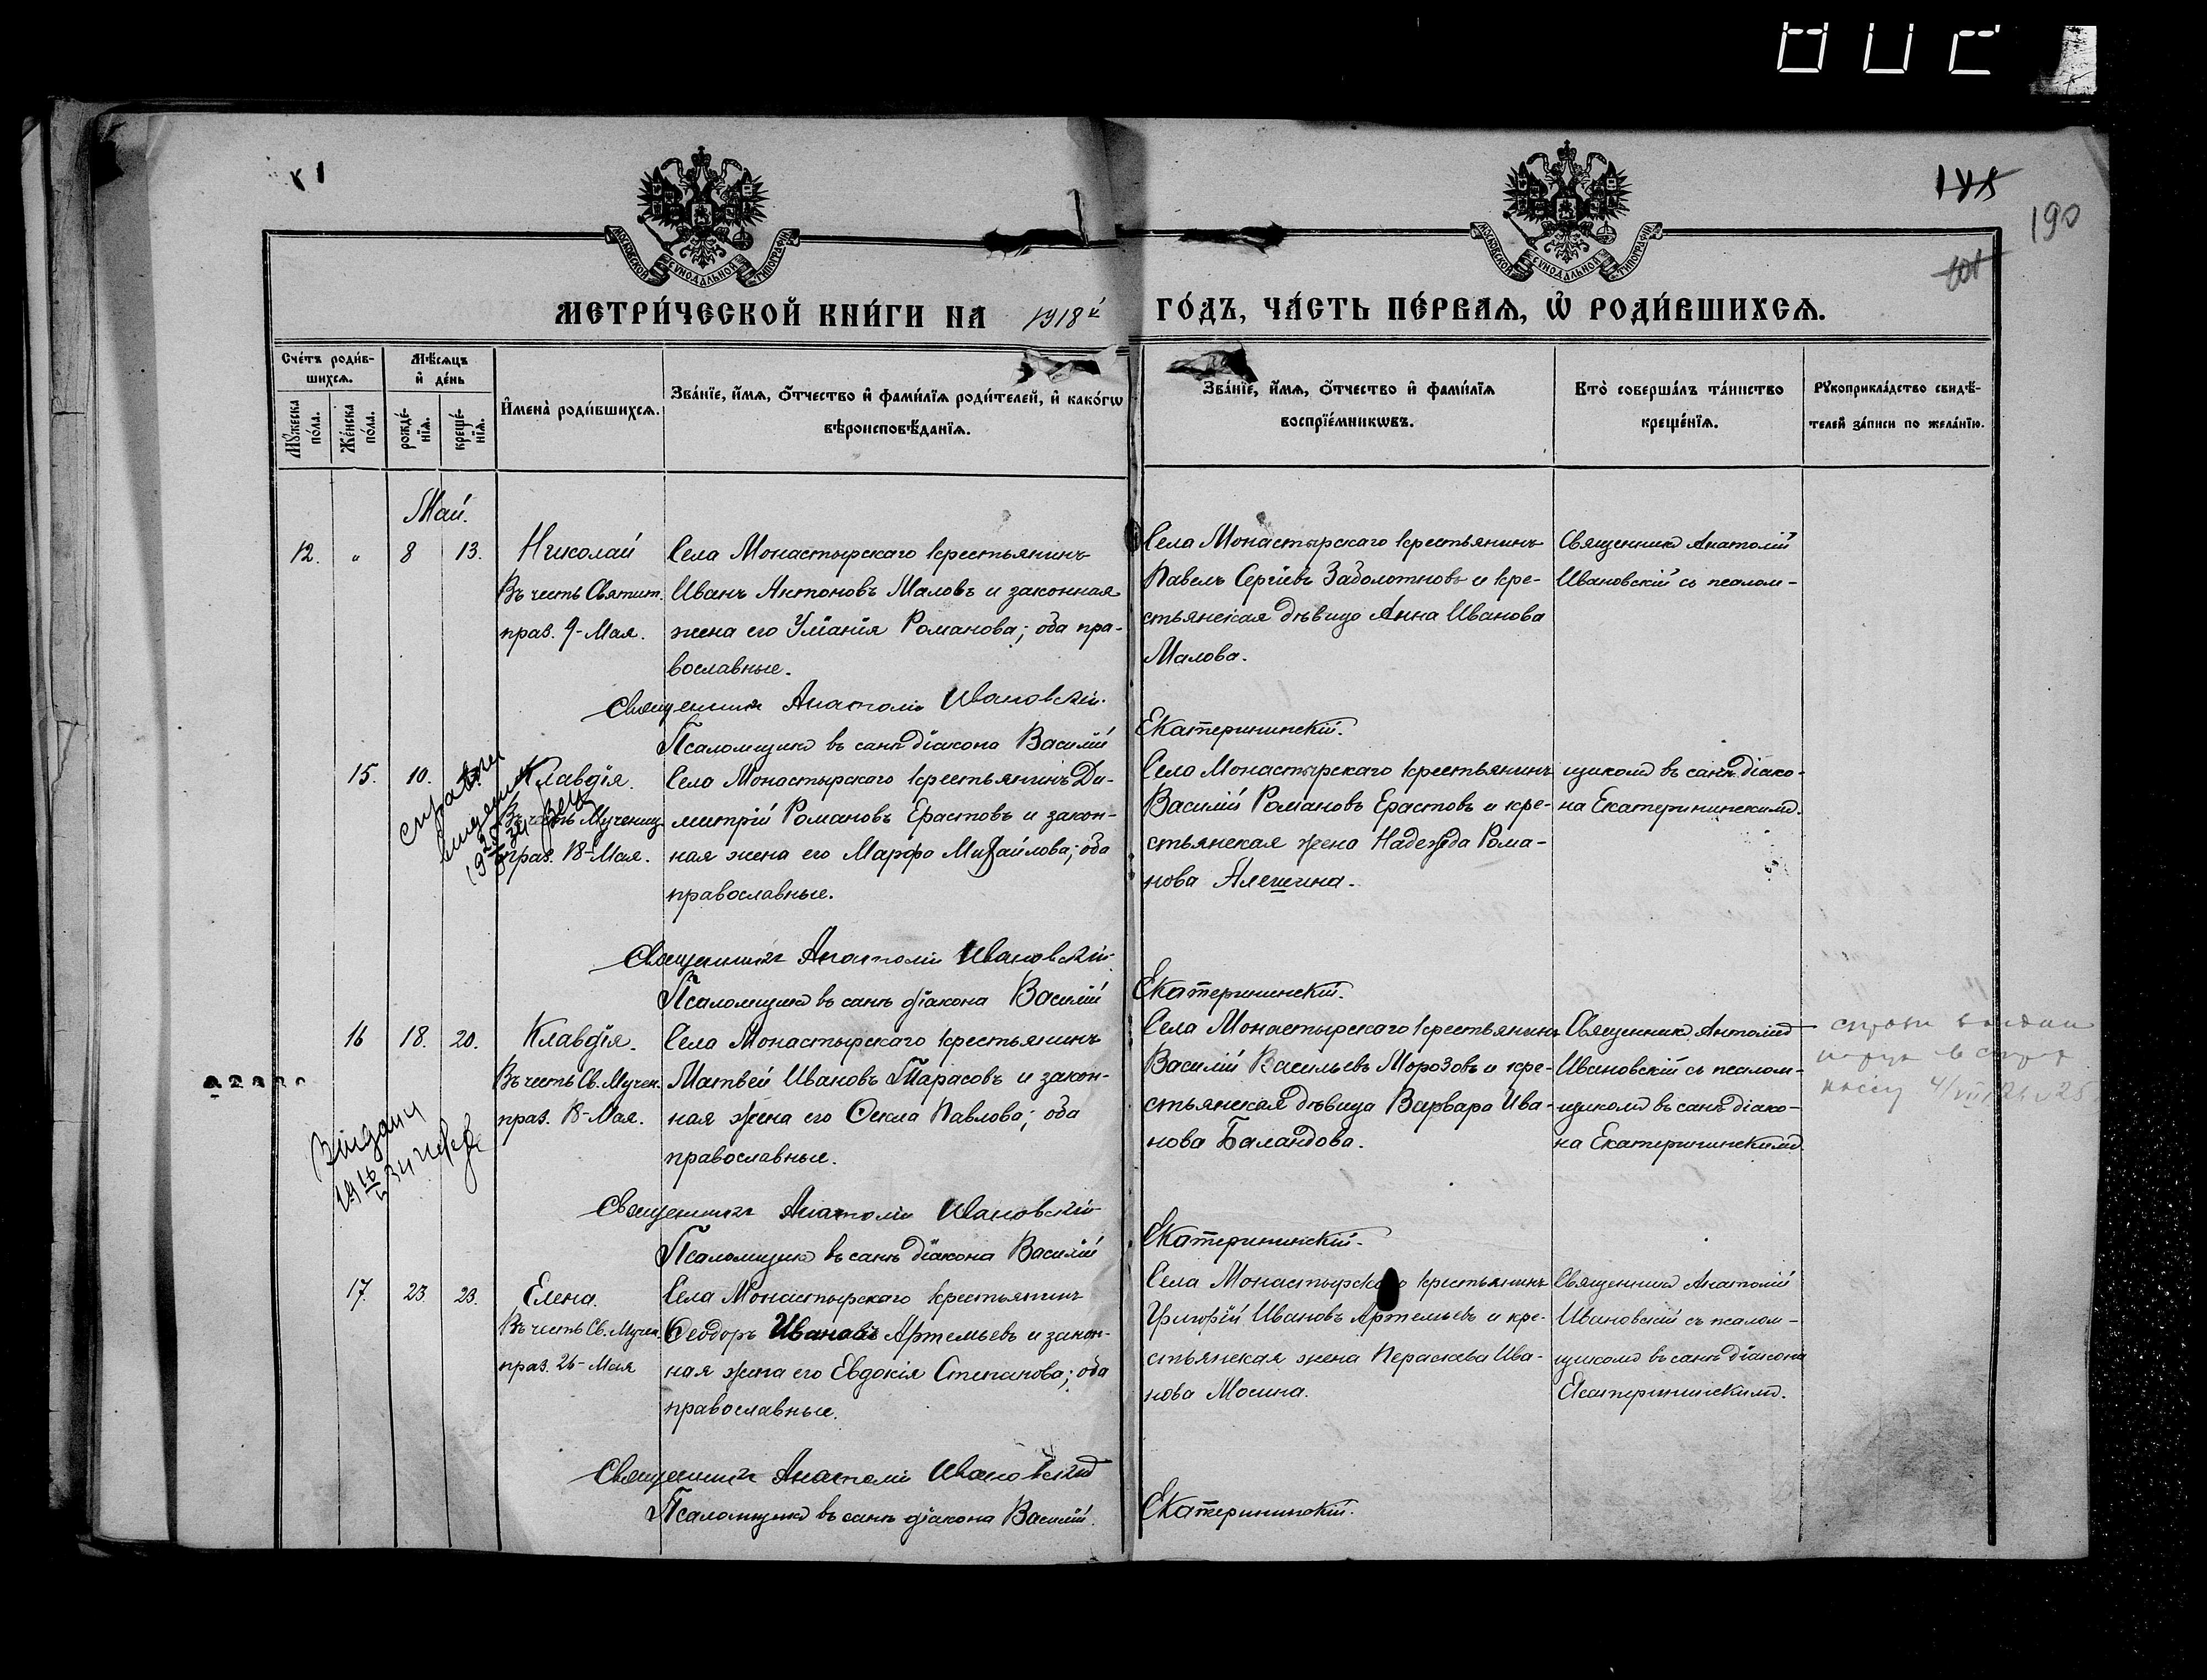 190
МОСКОВСКОЙ СУНОДАЛЬНОЙ ТИПОГРАФІИ
МОСКОВСКОЙ СУНОДАЛЬНОЙ ТИПОГРАФІИ
МЕТРИ́ЧЕСКОЙ КНИ́ГИ НА 1918й ГО́ДЪ, ЧА́СТЬ ПЕ́РВАѦ, Ѡ҆ РОДИ́ВШИХСѦ.
Сче́тъ роди́в-
шихсѧ.
Мꙋ́жеска по́ла.
Же́нска по́ла.
Мѣ́сѧцъ
и҆ де́нь
рожде́-
нїѧ.
креще́-
нїѧ.
И҆мена̀ роди́вшихсѧ.
Зва́нїе, и҆́мѧ, ѻ҆́тчество и҆ фами́лїѧ роди́телей, и҆ како́гѡ
вѣроисповѣ́данїѧ.
Зва́нїе, и҆́мѧ, ѻ҆́тчество и҆ фами́лїѧ
воспрїе́мникѡвъ.
Кто̀ соверша́лъ та́инство
креще́нїѧ.
Рꙋкоприкла́дство свидѣ́-
телей за́писи по жела́нїю.
Май.
12. " 8 13.
Николай
Въ честь Святит.
праз. 9-Мая.
Села Монастырскаго крестьянинъ
Иванъ Антоновъ Маловъ и законная
жена его Уліанія Романова; оба пра-
вославные.
Села Монастырскаго крестьянинъ
Павелъ Сергіевъ Заболотновъ и кре-
стьянская дѣвица Анна Иванова
Малова.
Священникъ Анатолій
Ивановскій съ псалом-
Священникъ Анатолій Ивановскій.
Псаломщикъ въ санѣ діакона Василій Екатерининскій.
15. 10.
Клавдія.
Въ честь Мучениц.
праз. 18-Мая.
Села Монастырскаго крестьянинъ Ди-
митрій Романовъ Ерастовъ и закон-
ная жена его Марфа Михайлова; оба
православные.
Села Монастырскаго крестьянинъ
Василій Романовъ Ерастовъ и кре-
стьянская жена Надежда Рома-
нова Алешина.
щикомъ въ санѣ діако-
на Екатерининскимъ.
Священникъ Анатолій Ивановскій.
Псаломщикъ въ санѣ діакона Василій Екатерининскій.
16 18. 20.
Клавдія.
Въ честь Св. Мучен.
праз. 18-Мая.
Села Монастырскаго крестьянинъ
Матвей Ивановъ Тарасовъ и закон-
ная жена его Ѳекла Павлова; оба
православные.
Села Монастырскаго крестьянинъ
Василій Васильевъ Морозовъ и кре-
стьянская дѣвица Варвара Ива-
нова Баландова.
Священникъ Антолій
Ивановскій съ псалом-
щикомъ въ санѣ діако-
на Екатерининскимъ.
Священникъ Анатолій Ивановскій
Псаломщикъ въ санѣ діакона Василій Екатерининскій.
17. 23. 23.
Елена.
Въ честь Св. Мучен.
праз. 26-Мая
Села Монастырскаго крестьянинъ
Ѳеодоръ Ивановъ Артемьевъ и закон-
ная жена его Евдокія Степанова; оба
православные.
Села Монастырскаго крестьянинъ
Григорій Ивановъ Артемьевъ и кре-
стьянская жена Параскева Ива-
нова Мосина.
Священникъ Анатолій
Ивановскій съ псалом-
щикомъ въ санѣ діакона
Екатерининскимъ.
Священникъ Анатолій Ивановскій
Псаломщикъ въ санѣ діакона Василій Екатерининскій.